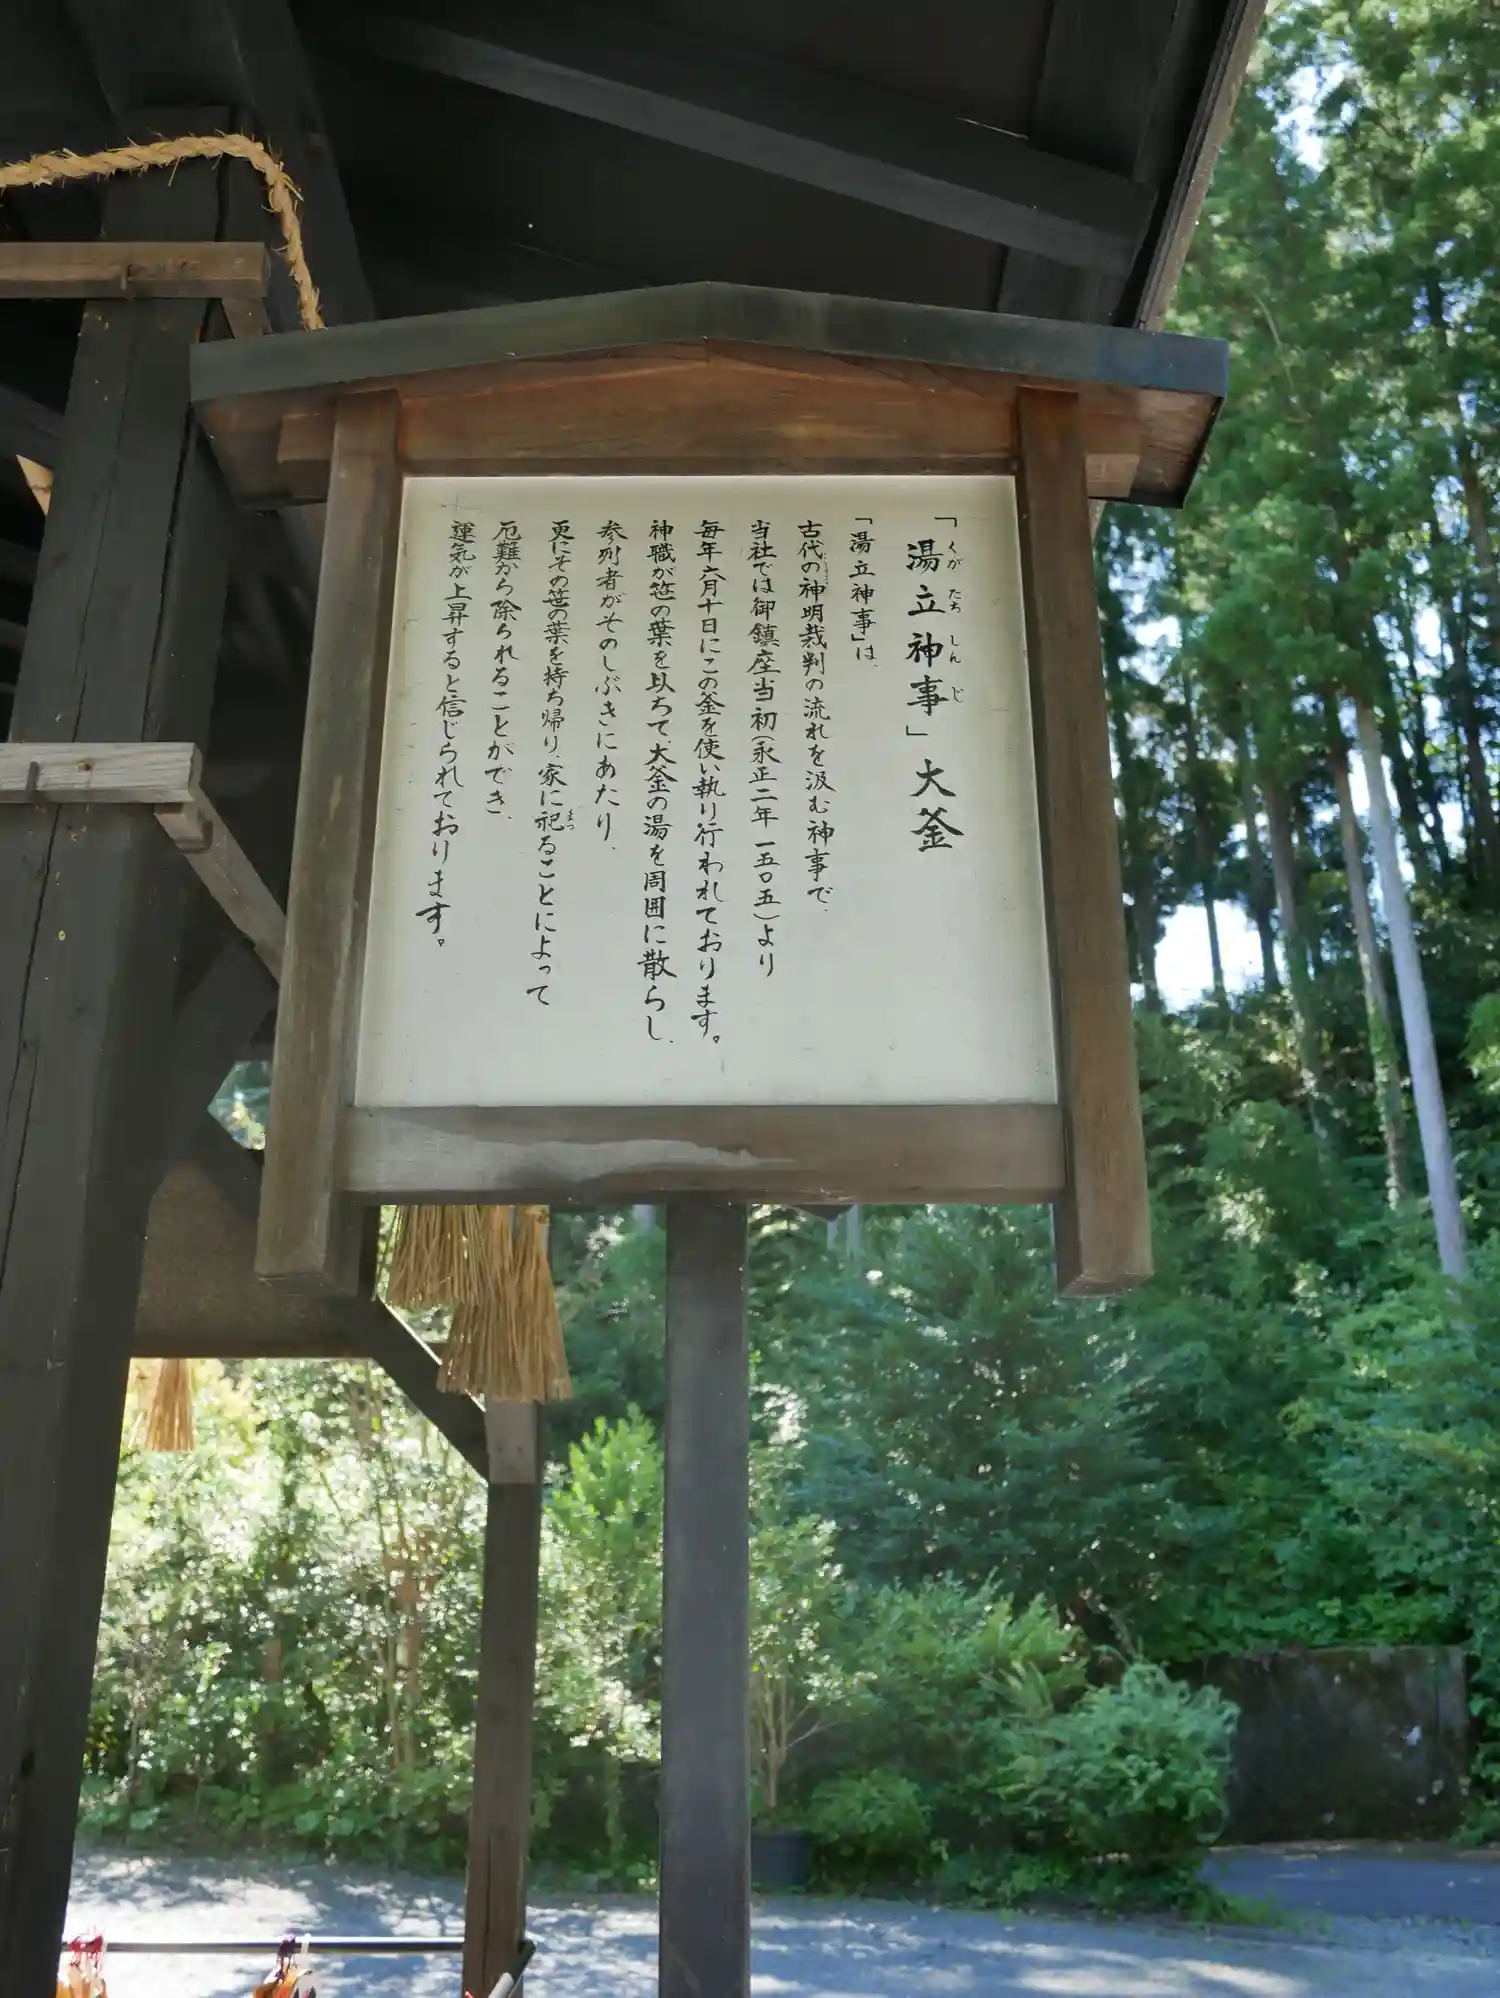 「湯立神事」大釜
「湯立神事」は、
古代の神明裁判の流れを汲む神事で、
当社では御鎮座当初(永正二年一五〇五)より
毎年六月十日にこの釜を使い執り行われております。
神職が笹の葉を以ちて、大釜の湯を周囲に散らし、
参列者がそのしぶきにあたり、
更にその笹の葉を持ち帰り、家に祀ることによって
厄難から除られることができ、
運気が上昇すると信じられております。